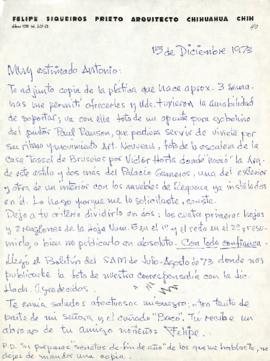 FELIPE SIQUEIROS PRIETO ARQUITECTO CHIHUAHUA CHIH
15 de Diciembre 1973
Muy estimado Antonio:
Te adjunto copia de la plática que hace aprox. 3 sema-
nas me permití ofrecerles y Uds. tuvieron la amabilidad
de soportar; va con ella foto de un apunte para gobelino
del pintor Paul Ranson, que pudiera servir de viñeta por
su ritmo y movimiento Art-Nouveau, foto de la escalera de la
casa Tassel de Bruselas por Victor Horta donde nació la Arq.
de este estilo y dos más del Palacio Gameros, una del exterior
y otra de un interior con los muebles de Requena ya instalados
en él. Lo hago porque me lo solicitaste, conste.
Dejo a tu criterio dividirlo en dos: las cuatro primeras hojas
y 2 renglones de la Hoja Num. 5 en el 1º y el resto en el 2º, resu-
mirlo, o bien no publicarlo en absoluto. Con toda confianza.
Llegó el Boletín del SAM de Julio-Agosto de 73 donde nos
publicaste la foto de nuestra correspondalía con la Lic.
Agradecidos.
Te envía saludos afectuosos mi suegro, ten tanto de
parte de mi señora y el cuñado "Paco". Tu recibe un
abrazo de tu amigo norteño Felipe.
P.D. Si preparas "sonetos de fin de año" de los que me hablaste, no
dejes de mandar una copia.